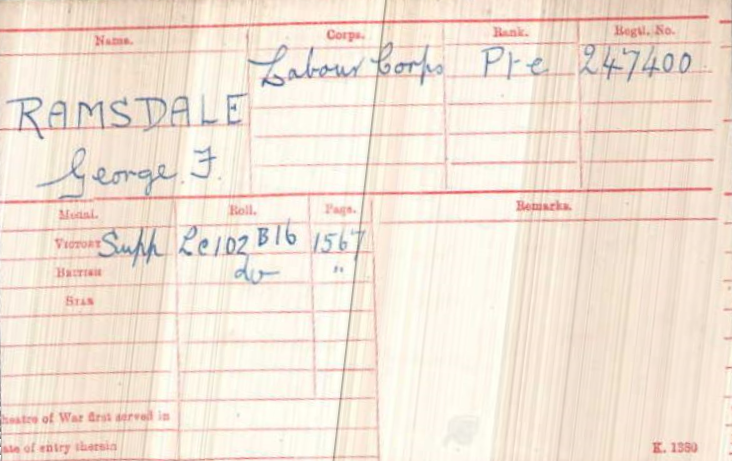 Name. Corps. Rank. Regtl. No.
Labour Corps Pte 247400
RAMSDALE
George. F.
Medal. Roll. Page. Remarks.
VICTORY Supp LC102 B16 1567
BRITISH do "
STAR
heatre of War first served in
ate of entry therein
K. 1380